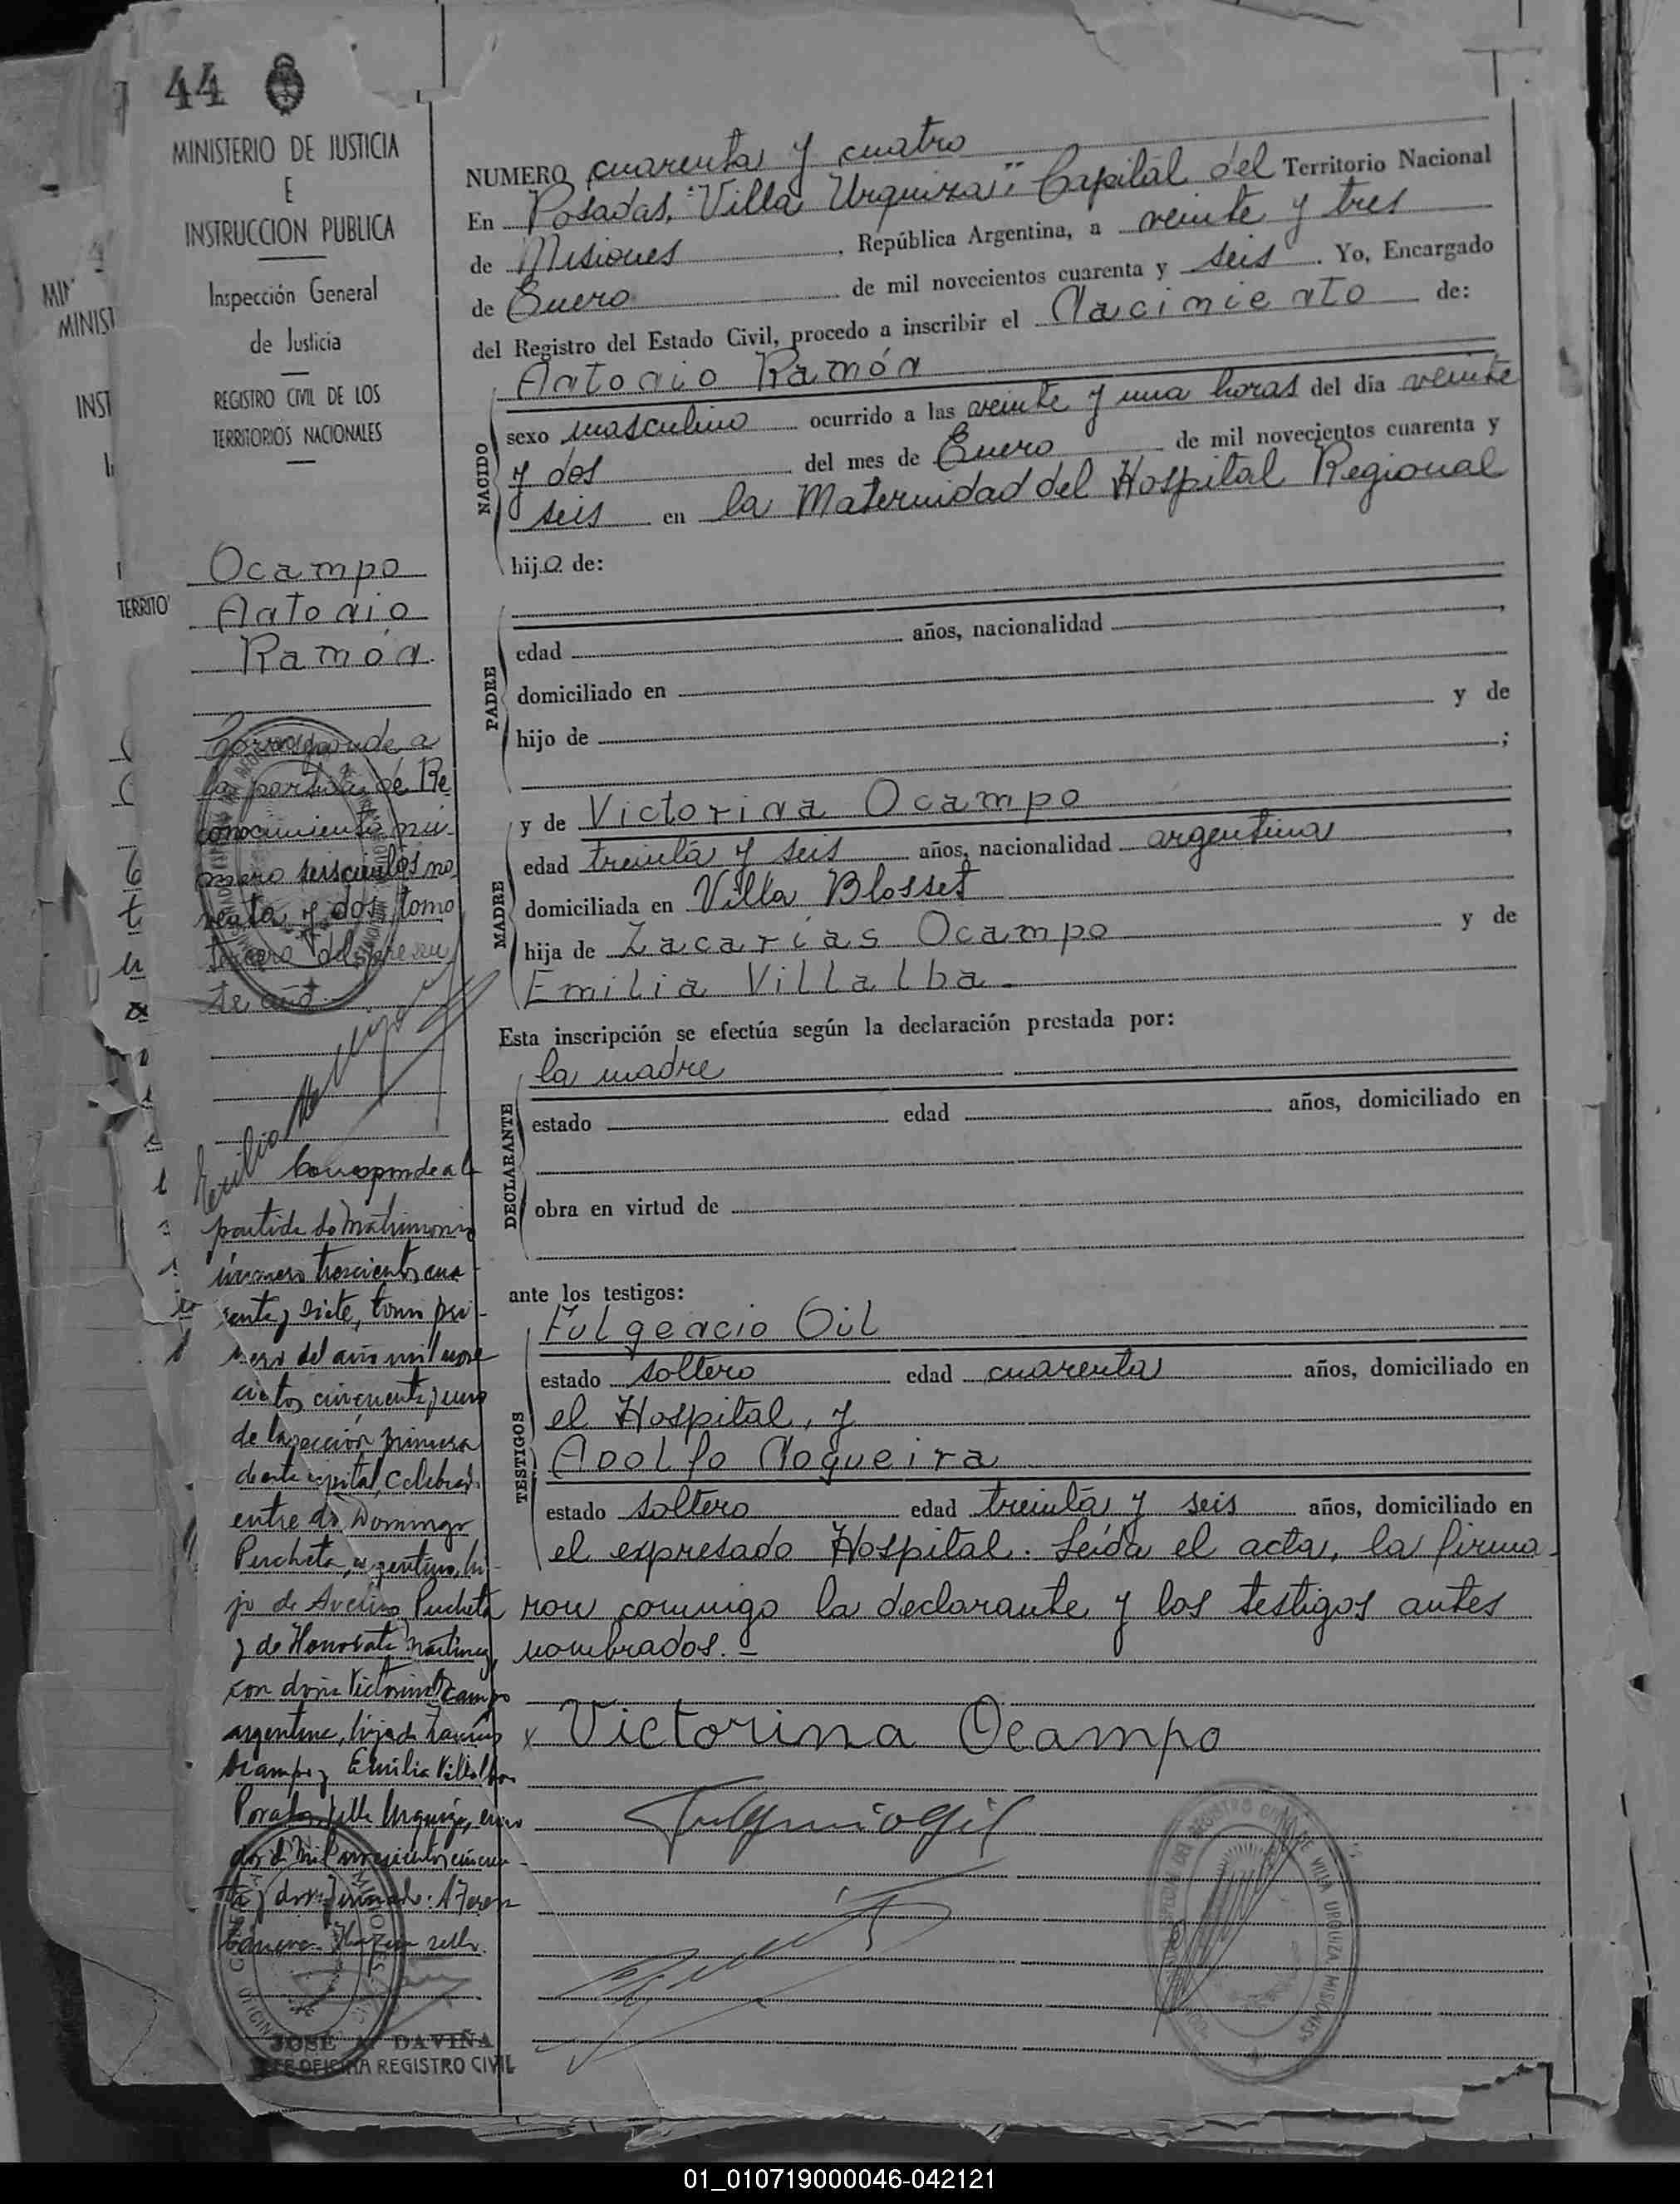 44
MINISTERIO DE JUSTICIA
E
INSTRUCCION PUBLICA
Inspección General
de Justicia
REGISTRO CIVIL DE LOS
TERRITORIOS NACIONALES
Ocampo
Antonio
Ramón.
Corresponde a
la partida de Re
conocimiento nú-
mero seiscientos no
venta y dos, tomo
tercero del presen
te año
Corresponde a la
partida de Matrimonio
número trescientos cua
renta y siete, tomo pri-
mero del año mil nove
cientos cincuenta y uno
de la sección primera
de esta capital, celebrado
entre do Domingo
Pucheta, argentino, hi-
jo de Avelino Pucheta
y de Honorata Martinez,
con doña Victorina Ocampo
argentina, hija de Zacarías
Ocampo y Emilia Villalba
Posadas, Villa Urquiza, enero
dos de mil novecientos cincuen-
ta y dos. Firmado:
sello.
JOSE A. DAVIÑA
JEFE OFICINA REGISTRO CIVIL
NUMERO cuarenta y cuatro
En Posadas, "Villa Urquiza" Capital del Territorio Nacional
de Misiones, República Argentina, a veinte y tres
de Enero de mil novecientos cuarenta y seis. Yo, Encargado
del Registro del Estado Civil, procedo a inscribir el Nacimiento de:
NACIDO
Antonio Ramón
sexo masculino ocurrido a las veinte y una horas del día veinte
y dos del mes de Enero de mil novecientos cuarenta y
seis en la Maternidad del Hospital Regional
hijo de:
PADRE
edad años, nacionalidad ,
domiciliado en
hijo de y de
;
MADRE
y de Victorina Ocampo
edad treinta y seis años, nacionalidad argentina,
domiciliada en Villa Blosset
hija de Zacarías Ocampo y de
Emilia Villalba.
Esta inscripción se efectúa según la declaración prestada por:
DECLARANTE
la madre
estado edad años, domiciliado en
obra en virtud de
ante los testigos:
TESTIGOS
Fulgencio Gil
estado soltero edad cuarenta años, domiciliado en
el Hospital, y
Adolfo Nogueira
estado soltero edad treinta y seis años, domiciliado en
el expresado Hospital. Leída el acta, la firma-
ron conmigo la declarante y los testigos antes
nombrados. =
x Victorina Ocampo
Fulgencio Gil
REGISTRO CIVIL DE VILLA URQUIZA. MISIONES
01_010719000046-042121